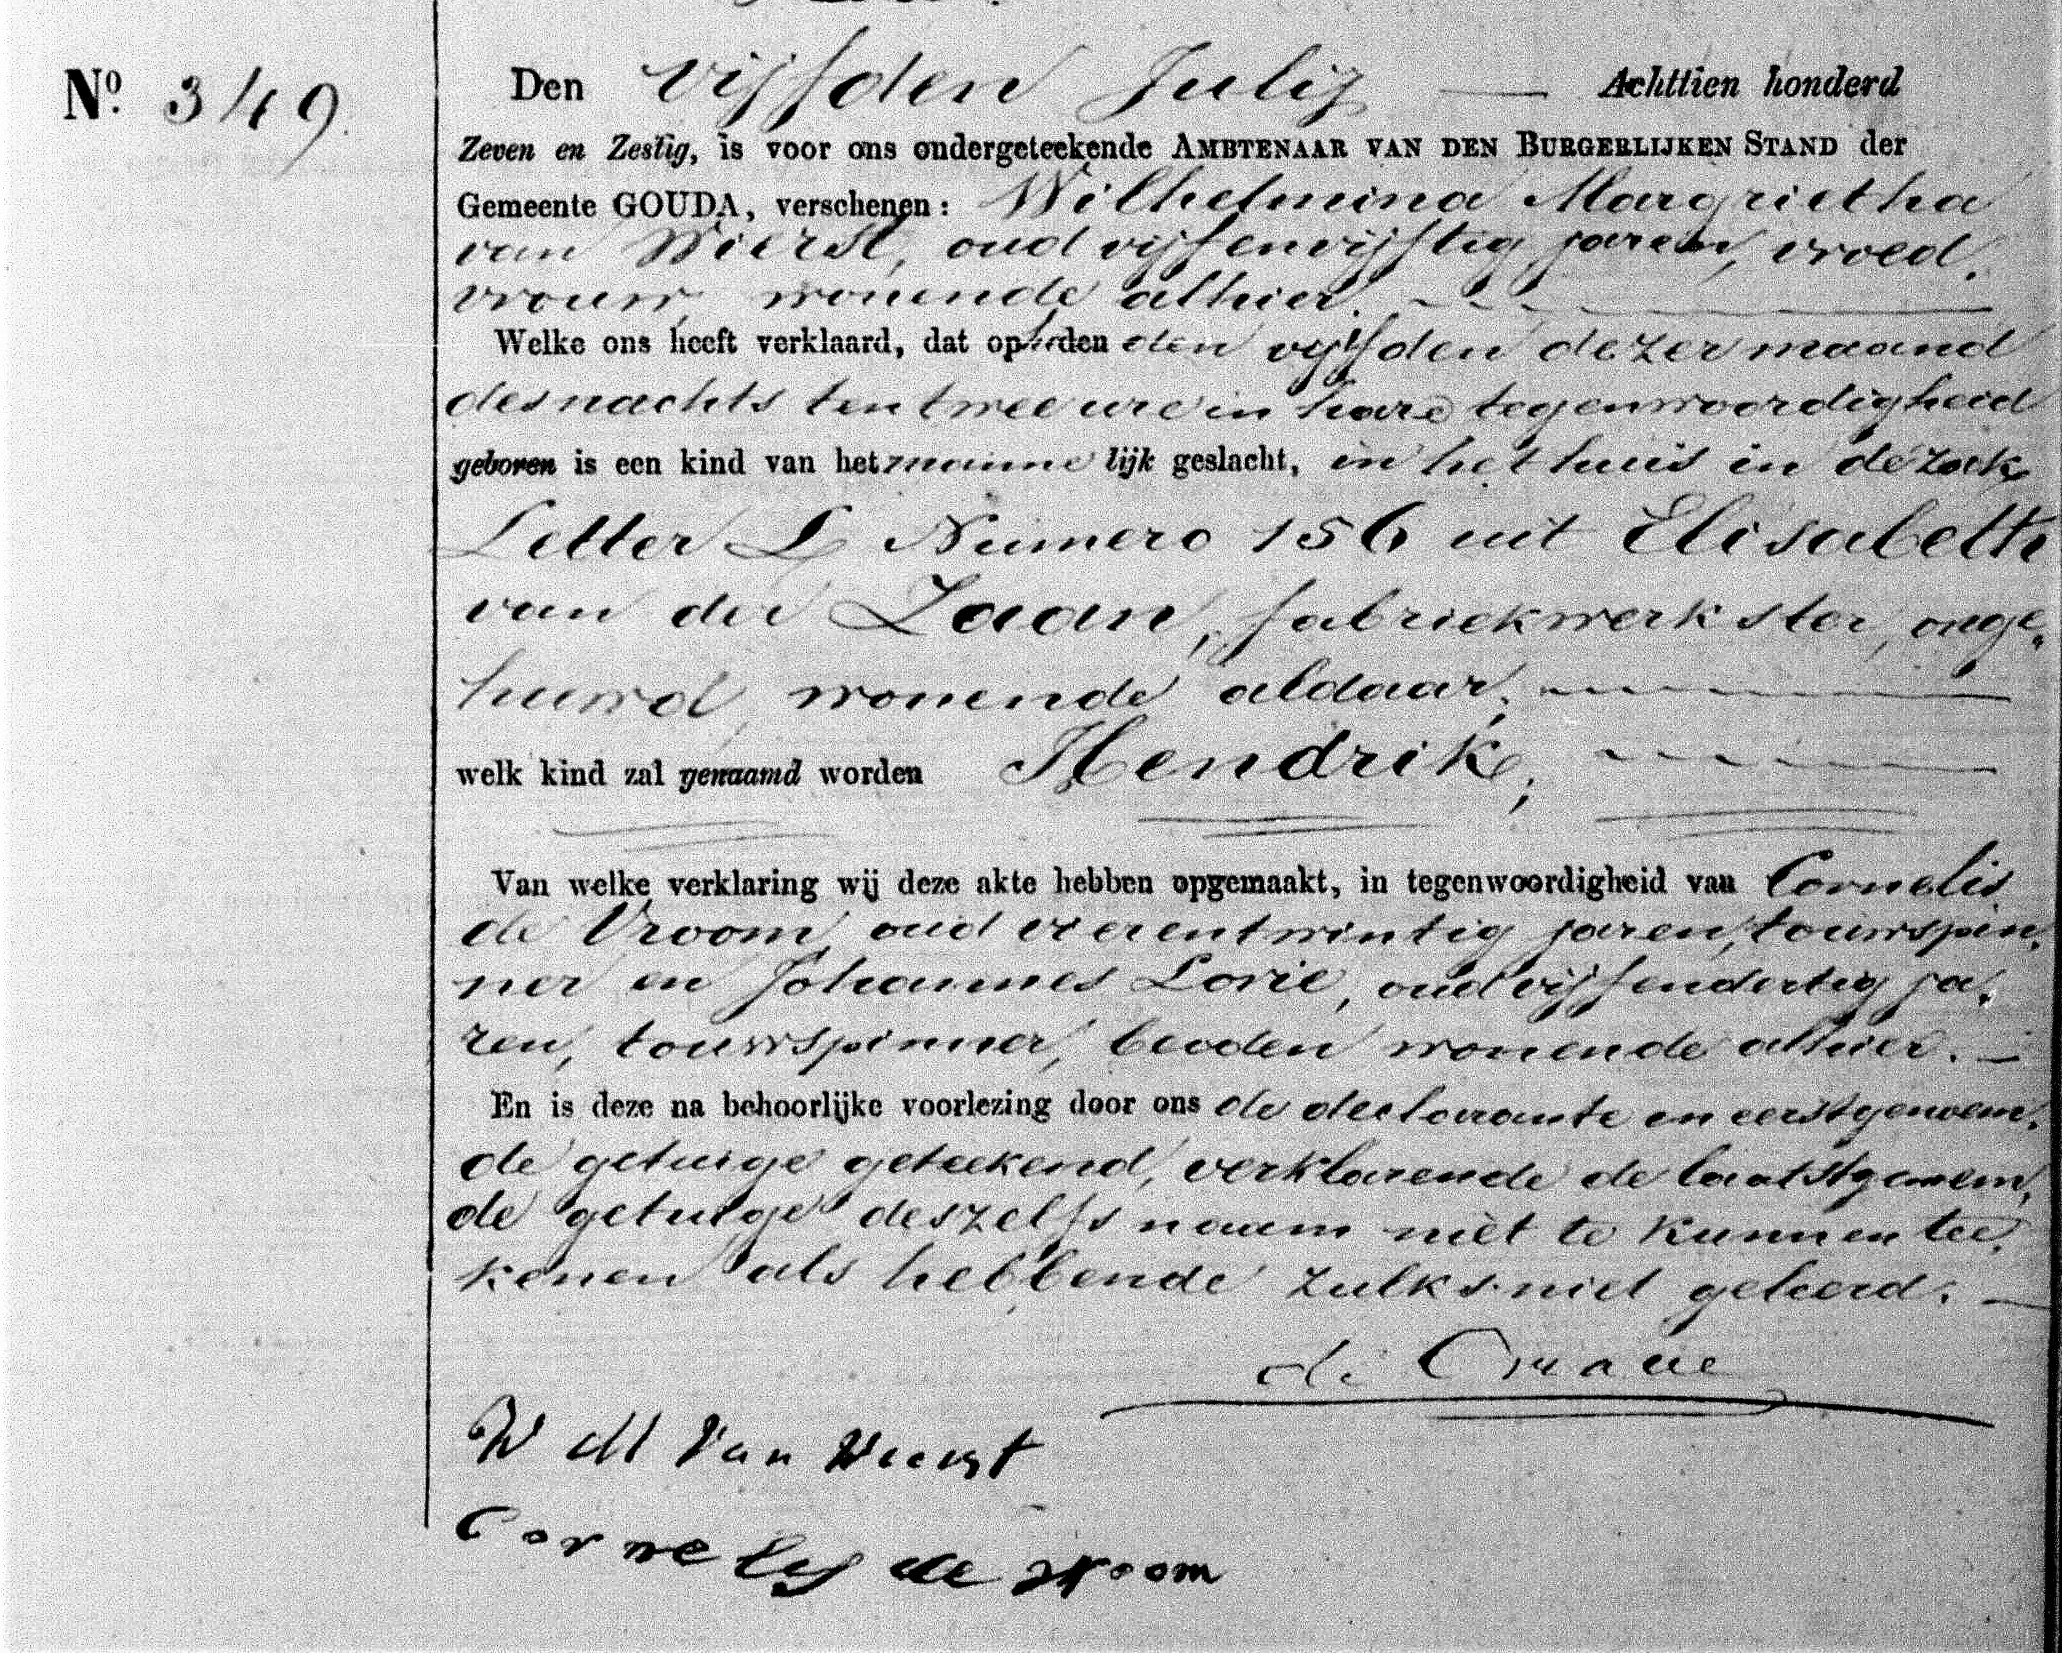 No. 349.
Den vijfden Julij Achttien honderd
Zeven en Zestig, is voor ons ondergeteekende AMBTENAAR VAN DEN BURGERLIJKEN STAND der
Gemeente GOUDA, verschenen: Wilhelmina Margrietha
van Wierst, oud vijfenvijftig jaren, vroed.
vrouw, wonende alhier.
Welke ons heeft verklaard, dat op heden den vijfden dezer maand
des nachts ten twee ure in hare tegenwoordigheid
geboren is een kind van het manne lijk geslacht, in het huis in de zak,
Letter L Numero 156 uit Elisabeth
van der Zaan, fabriekwerkster, onge.
huwd, wonende aldaar,
welk kind zal genaamd worden Hendrik;
Van welke verklaring wij deze akte hebben opgemaakt, in tegenwoordigheid van Cornelis
de Vroom, oud vierentwintig jaren, touwspin.
ner en Johannes Lorie, oud vijfendertig ja.
ren, touwspinner, beiden wonende alhier.
En is deze na behoorlijke voorlezing door ons de declarante en eerstgenoem.
de getuige geteekend, verklarende de laatstgenoem.
de getuige deszelfs naam niet te kunnen tee.
kenen als hebbende zulks niet geleerd.
W M Van Wierst
Cornelis de Vroom